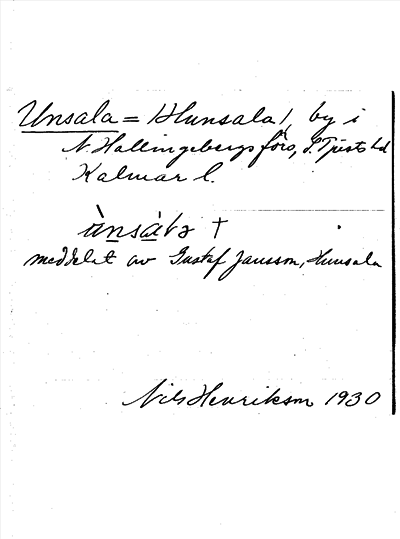 Unsala = /Hunsala/, by i
N. Hallingebergs förs, S. Tjusts hd
Kalmar l.
ùnsàla †
meddelat av Gustaf Jansson, Hunsala
Nils Henrikson 1930